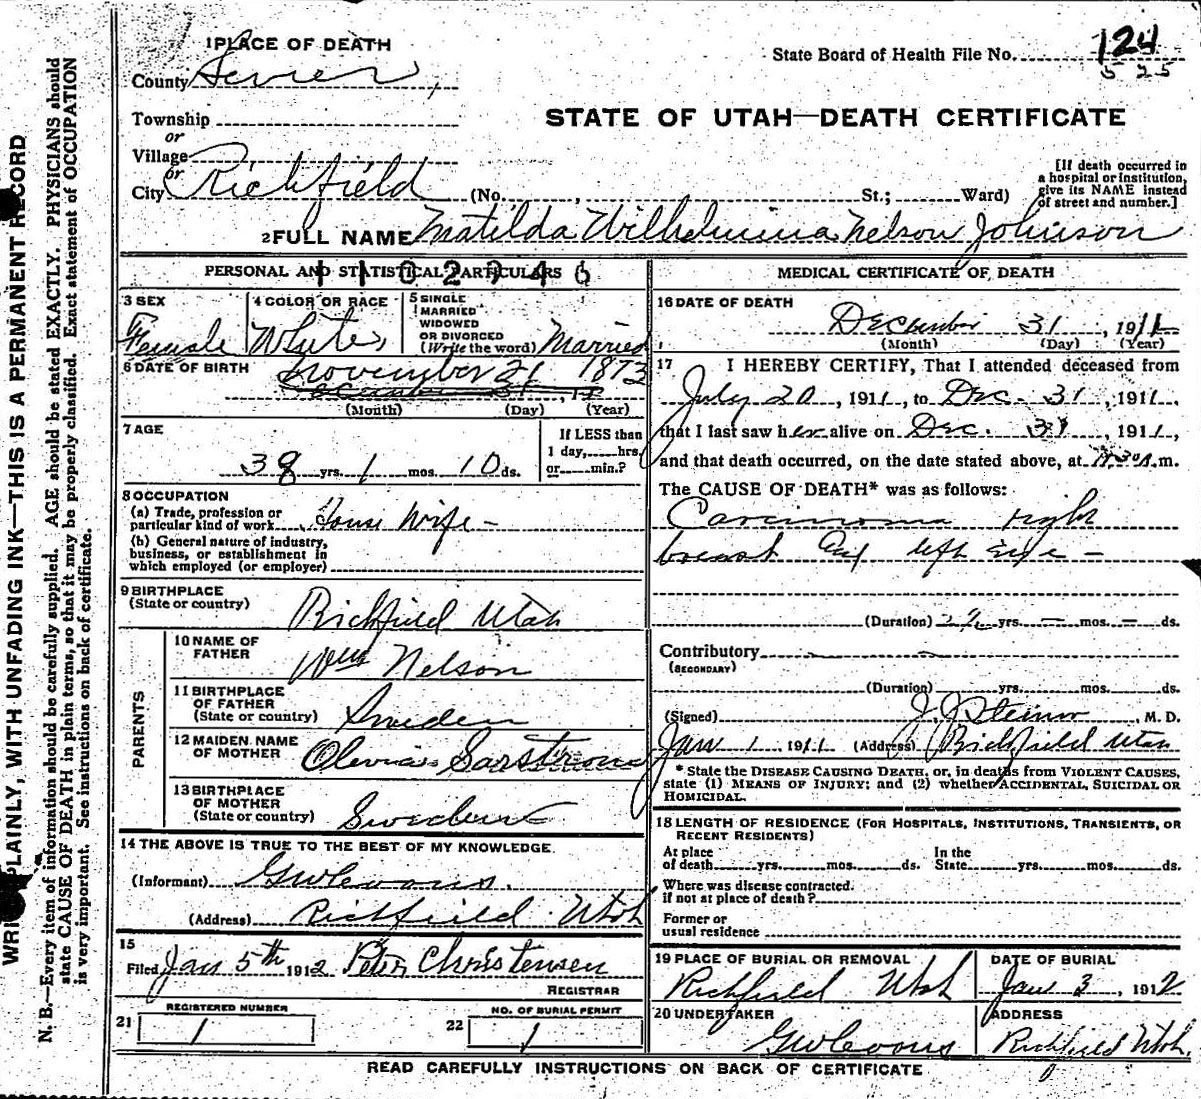 WRITE PLAINLY, WITH UNFADING INK—THIS IS A PERMANENT RECORD
N. B.—Every item of information should be carefully supplied. AGE should be stated EXACTLY. PHYSICIANS should
state CAUSE OF DEATH in plain terms, so that it may be properly classified. Exact statement of OCCUPATION
is very important. See instructions on back of certificate.
1 PLACE OF DEATH
County Sevier
Township
or
Village
or
City Richfield (No. , St.; Ward)
State Board of Health File No. 124
5 25
STATE OF UTAH—DEATH CERTIFICATE
[If death occurred in
a hospital or institution,
give its NAME instead
of street and number.]
2 FULL NAME Matilda Wilhelmina Nelson Johnson
PERSONAL AND STATISTICAL PARTICULARS
1102746
3 SEX
Female
4 COLOR OR RACE
White
5 SINGLE
MARRIED
WIDOWED
OR DIVORCED
(Write the word) Married
6 DATE OF BIRTH November 21 1873
(Month) (Day) (Year)
7 AGE
38 yrs. 1 mos. 10 ds.
If LESS than
1 day, hrs.
or min.?
8 OCCUPATION
(a) Trade, profession or
particular kind of work House Wife -
(b) General nature of industry,
business, or establishment in
which employed (or employer)
9 BIRTHPLACE
(State or country) Richfield Utah
PARENTS
10 NAME OF
FATHER Wm Nelson
11 BIRTHPLACE
OF FATHER
(State or country) Sweden
12 MAIDEN NAME
OF MOTHER Olivia
13 BIRTHPLACE
OF MOTHER
(State or country) Sweden
14 THE ABOVE IS TRUE TO THE BEST OF MY KNOWLEDGE.
(Informant)
(Address) Richfield Utah
15
Filed Jan 5th 1912 Peter Christensen
REGISTRAR
REGISTERED NUMBER
21 1
NO. OF BURIAL PERMIT
22 1
MEDICAL CERTIFICATE OF DEATH
16 DATE OF DEATH
December 31, 1911
(Month) (Day) (Year)
17 I HEREBY CERTIFY, That I attended deceased from
July 20, 1911, to Dec. 31, 1911,
that I last saw her alive on Dec. 31, 1911,
and that death occurred, on the date stated above, at m.
The CAUSE OF DEATH* was as follows:
Carcinoma right
breast left eye -
(Duration) yrs. — mos. — ds.
Contributory
(SECONDARY)
(Duration) yrs. mos. ds.
(Signed) J. J. Steiner, M. D.
Jan 1 1911 (Address) Richfield Utah
* State the DISEASE CAUSING DEATH, or, in deaths from VIOLENT CAUSES,
state (1) MEANS OF INJURY; and (2) whether ACCIDENTAL, SUICIDAL OR
HOMICIDAL.
18 LENGTH OF RESIDENCE (FOR HOSPITALS, INSTITUTIONS, TRANSIENTS, OR
RECENT RESIDENTS)
At place
of death yrs. mos. ds.
In the
State yrs. mos. ds.
Where was disease contracted.
if not at place of death?
Former or
usual residence
19 PLACE OF BURIAL OR REMOVAL
Richfield Utah
DATE OF BURIAL
Jan 3, 1912
20 UNDERTAKER
ADDRESS
Richfield Utah.
READ CAREFULLY INSTRUCTIONS ON BACK OF CERTIFICATE